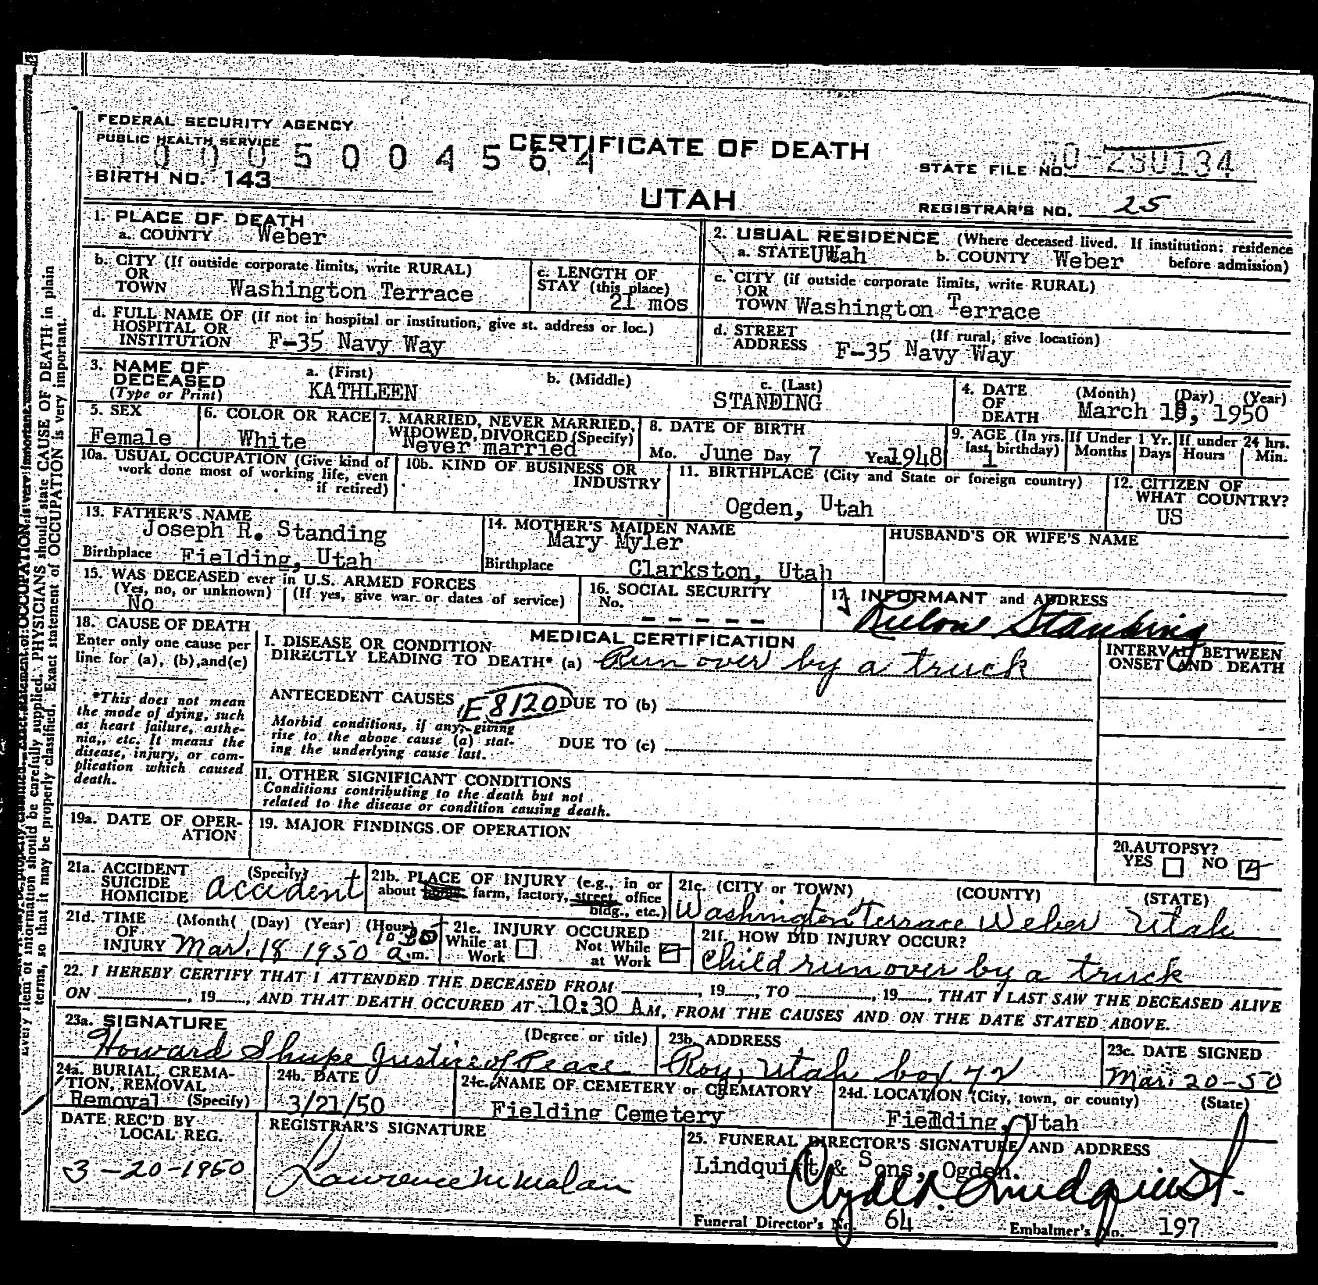 FEDERAL SECURITY AGENCY
PUBLIC HEALTH SERVICE
CERTIFICATE OF DEATH
UTAH
BIRTH NO. 143
STATE FILE NO.
REGISTRAR'S NO. 25
1. PLACE OF DEATH
a. COUNTY Weber
2. USUAL RESIDENCE (Where deceased lived. If institution: residence before admission)
a. STATE Utah b. COUNTY Weber
b. CITY (If outside corporate limits, write RURAL)
OR
TOWN Washington Terrace
c. LENGTH OF
STAY (this place)
21 mos
c. CITY (if outside corporate limits, write RURAL)
OR
TOWN Washington Terrace
d. FULL NAME OF (If not in hospital or institution, give st. address or loc.)
HOSPITAL OR
INSTITUTION F-35 Navy Way
d. STREET (If rural, give location)
ADDRESS F-35 Navy Way
3. NAME OF
DECEASED
(Type or Print)
a. (First) b. (Middle) c. (Last)
KATHLEEN STANDING
4. DATE (Month) (Day) (Year)
OF
DEATH March 18, 1950
5. SEX
Female
6. COLOR OR RACE
White
7. MARRIED, NEVER MARRIED,
WIDOWED, DIVORCED (Specify)
Never married
8. DATE OF BIRTH
Mo. June Day 7 Year 1948
9. AGE (In yrs. last birthday) 1
If Under 1 Yr. Months Days
If under 24 hrs. Hours Min.
10a. USUAL OCCUPATION (Give kind of
work done most of working life, even
if retired)
10b. KIND OF BUSINESS OR
INDUSTRY
11. BIRTHPLACE (City and State or foreign country)
Ogden, Utah
12. CITIZEN OF
WHAT COUNTRY?
US
13. FATHER'S NAME
Joseph R. Standing
Birthplace Fielding, Utah
14. MOTHER'S MAIDEN NAME
Mary Myler
Birthplace Clarkston, Utah
HUSBAND'S OR WIFE'S NAME
15. WAS DECEASED ever in U.S. ARMED FORCES
(Yes, no, or unknown) (If yes, give war or dates of service)
No
16. SOCIAL SECURITY
No. - - - - -
17. INFORMANT and ADDRESS
Standing
18. CAUSE OF DEATH
Enter only one cause per
line for (a), (b), and (c)
*This does not mean
the mode of dying, such
as heart failure, asthe-
nia, etc. It means the
disease, injury, or com-
plication which caused
death.
MEDICAL CERTIFICATION
I. DISEASE OR CONDITION
DIRECTLY LEADING TO DEATH* (a) Run over by a truck
INTERVAL BETWEEN
ONSET AND DEATH
ANTECEDENT CAUSES E8120 DUE TO (b)
Morbid conditions, if any, giving
rise to the above cause (a) stat-
ing the underlying cause last.
DUE TO (c)
II. OTHER SIGNIFICANT CONDITIONS
Conditions contributing to the death but not
related to the disease or condition causing death.
19a. DATE OF OPER-
ATION
19. MAJOR FINDINGS OF OPERATION
20. AUTOPSY?
YES NO
21a. ACCIDENT (Specify)
SUICIDE
HOMICIDE accident
21b. PLACE OF INJURY (e.g., in or
about home, farm, factory, street, office
bldg., etc.)
21c. (CITY or TOWN) (COUNTY) (STATE)
Washington Terrace Weber Utah
21d. TIME (Month) (Day) (Year) (Hour)
OF
INJURY Mar. 18 1950 a.m.
21e. INJURY OCCURED
While at Work Not While at Work
21f. HOW DID INJURY OCCUR?
Child run over by a truck
22. I HEREBY CERTIFY THAT I ATTENDED THE DECEASED FROM , 19 , TO , 19 , THAT I LAST SAW THE DECEASED ALIVE
ON , 19 , AND THAT DEATH OCCURED AT 10:30 A M, FROM THE CAUSES AND ON THE DATE STATED ABOVE.
23a. SIGNATURE (Degree or title)
Howard Shupe Justice of Peace
23b. ADDRESS
Roy, Utah box 42
23c. DATE SIGNED
Mar. 20-50
24a. BURIAL, CREMA-
TION, REMOVAL
Removal (Specify)
24b. DATE
3/21/50
24c. NAME OF CEMETERY or CREMATORY
Fielding Cemetery
24d. LOCATION (City, town, or county) (State)
Fielding, Utah
DATE REC'D BY
LOCAL REG.
3-20-1950
REGISTRAR'S SIGNATURE
Lawrence M Malan
25. FUNERAL DIRECTOR'S SIGNATURE AND ADDRESS
Lindquist & Sons, Ogden.
Clyde R. Lindquist.
Funeral Director's No. 64 Embalmer's No. 197
Every item of information should be carefully supplied. PHYSICIANS should state CAUSE OF DEATH in plain
terms, so that it may be properly classified. Exact statement of OCCUPATION is very important.